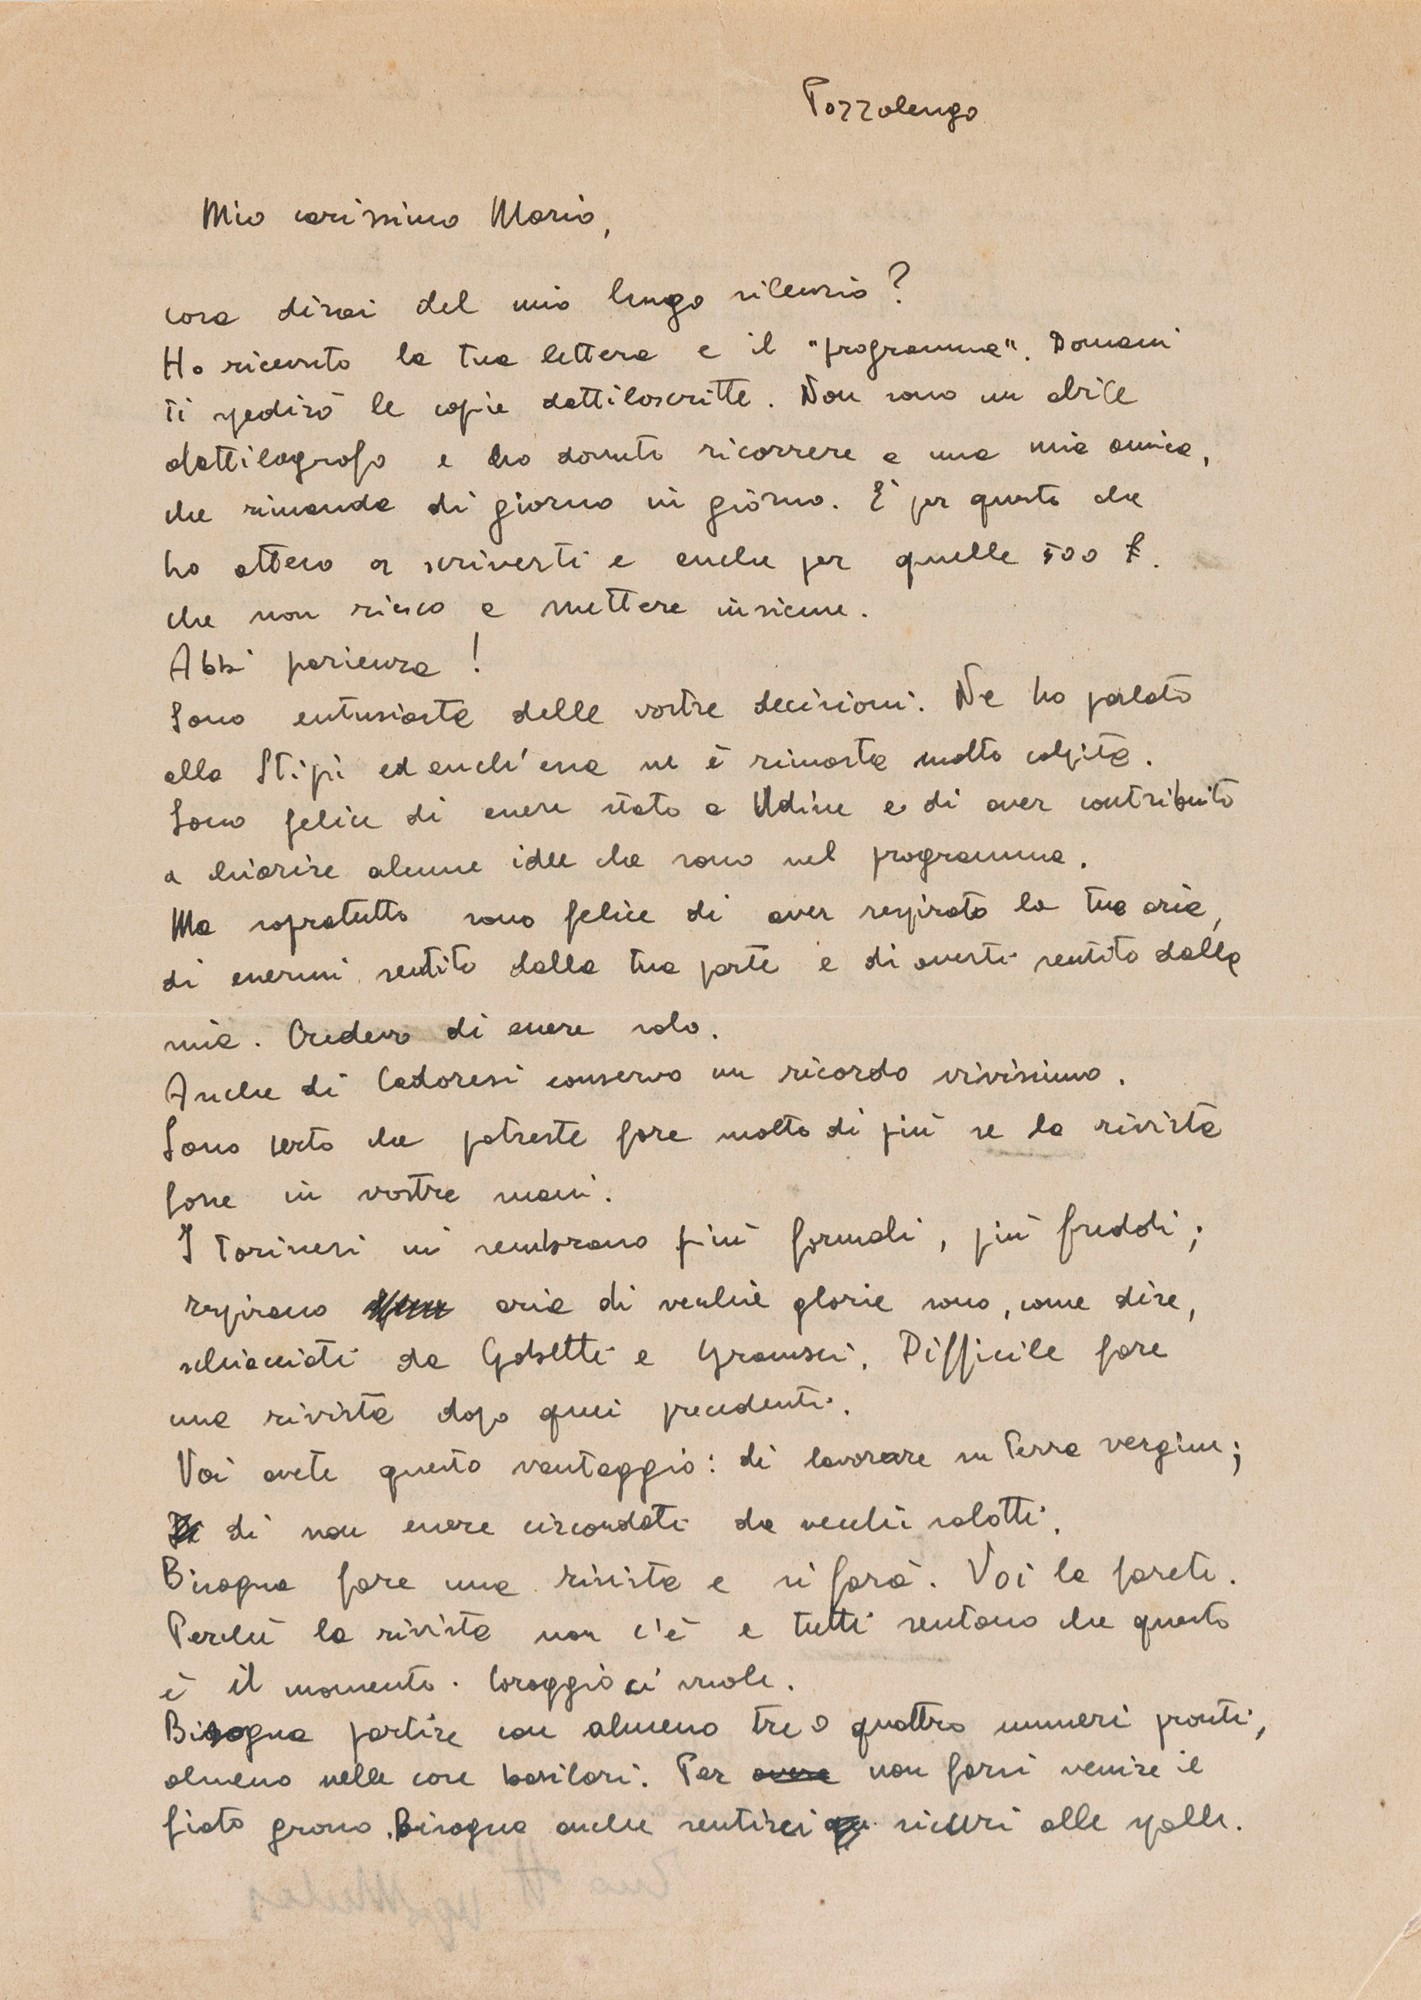 Pozzolengo
Mio carissimo Mario,
cosa dirai del mio lungo silenzio?
Ho ricevuto la tua lettera e il "programma". Domani
ti spedirò le copie dattiloscritte. Non sono un abile
dattilografo e ho dovuto ricorrere a una mia amica,
che rimanda di giorno in giorno. È per questo che
ho atteso a scriverti e anche per quelle 500 £.
che non riesco a mettere insieme.
Abbi pazienza!
Sono entusiasta delle vostre decisioni. Ne ho parlato
alla Stipi ed anch'essa ne è rimasta molto colpita.
Sono felice di essere stato a Udine e di aver contribuito
a chiarire alcune idee che sono nel programma.
Ma sopratutto sono felice di aver respirato la tua aria,
di essermi sentito dalla tua parte e di averti sentito dalla
mia. Credevo di essere solo.
Anche di Cadoresi conservo un ricordo vivissimo.
Sono certo che potreste fare molto di più se la rivista
fosse in vostre mani.
I torinesi mi sembrano più formali, più freddi;
respirano aria di vecchie glorie sono, come dire,
schiacciati da Gobetti e Gramsci. Difficile fare
una rivista dopo quei precedenti.
Voi avete questo vantaggio: di lavorare su terra vergine;
di non essere circondati da vecchi salotti.
Bisogna fare una rivista e si farà. Voi la farete.
Perché la rivista non c'è e tutti sentono che questo
è il momento. Coraggio ci vuole.
Bisogna partire con almeno tre o quattro numeri pronti,
almeno nelle cose basilari. Per avere non farsi venire il
fiato grosso. Bisogna anche sentirsi sicuri alle spalle.